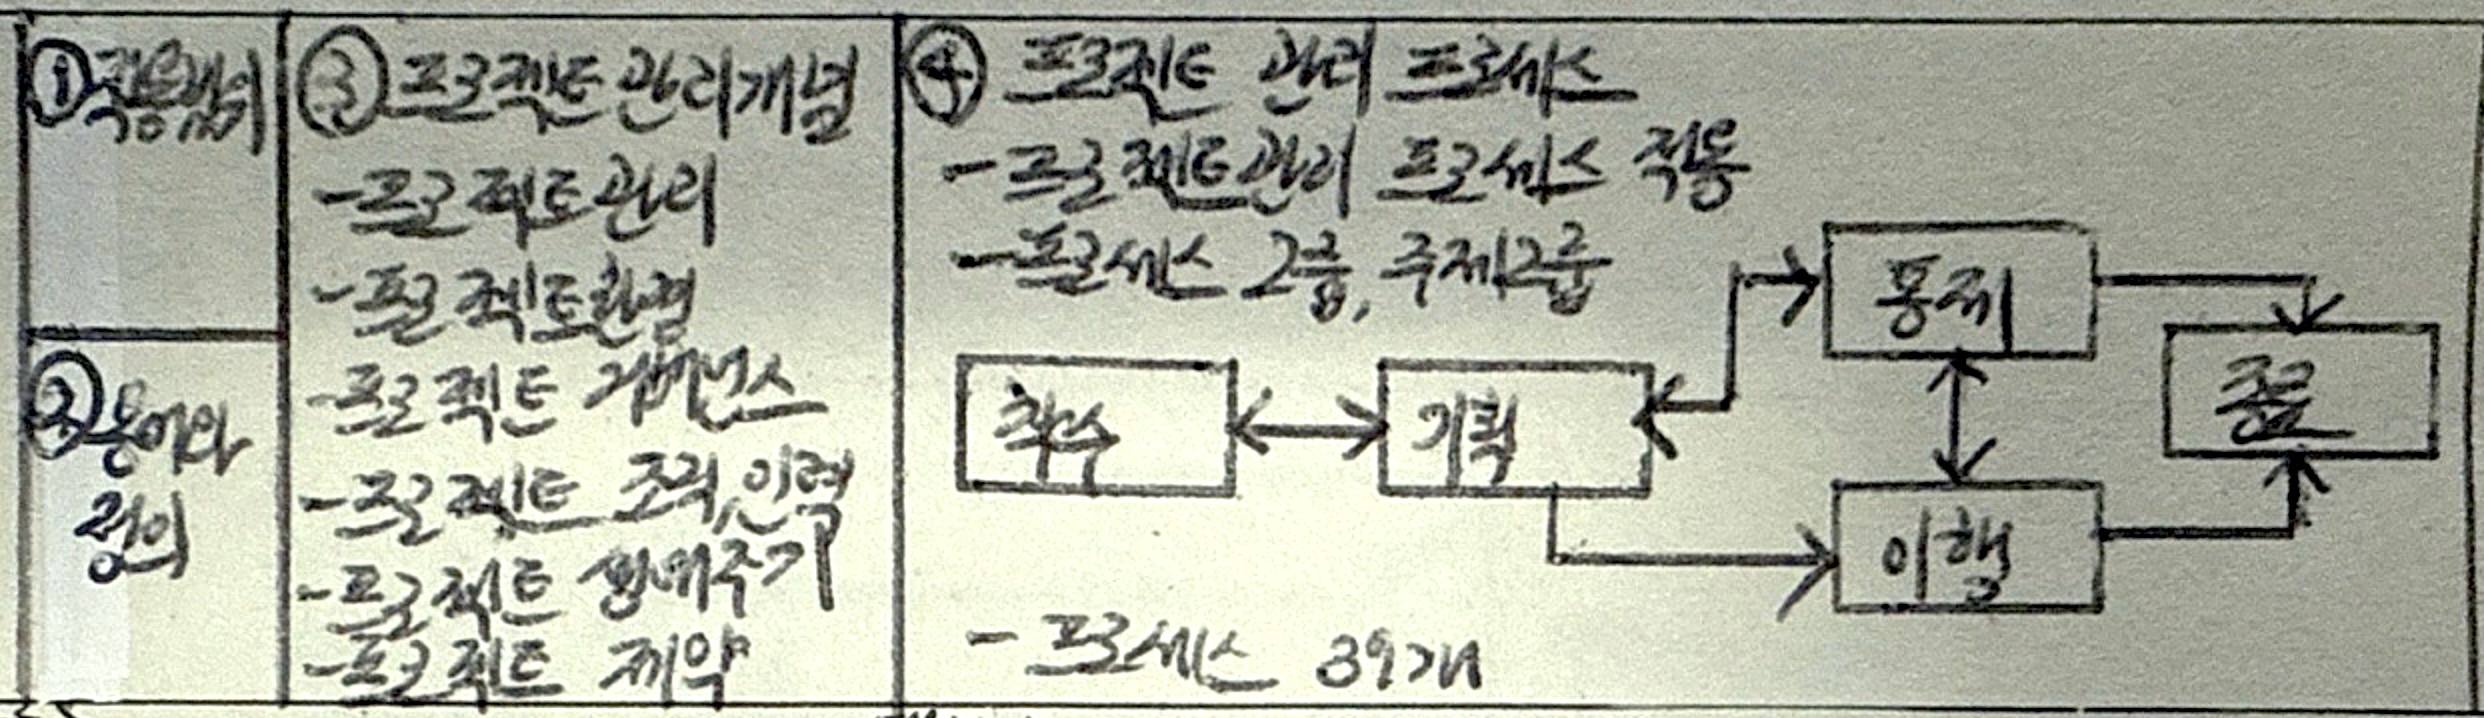 ① 적용범위
② 용어와
정의
③ 프로젝트 관리개념
- 프로젝트관리
- 프로젝트환경
- 프로젝트 거버넌스
- 프로젝트 조직, 인력
- 프로젝트 생애주기
- 프로젝트 제약
④ 프로젝트 관리 프로세스
- 프로젝트관리 프로세스 적용
- 프로세스 그룹, 주제그룹
착수
기획
통제
이행
종료
- 프로세스 39개